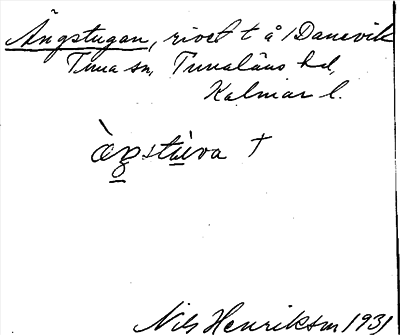 Ängstugan, rivet t å Danevik
Tuna sn, Tunaläns hd,
Kalmar l.
àgstùva †
Nils Henriksson 1931